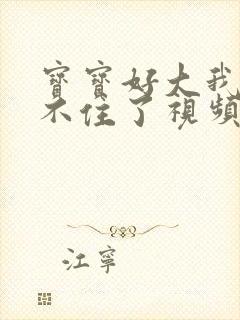 寶寶好大我
不住了視頻
江寧